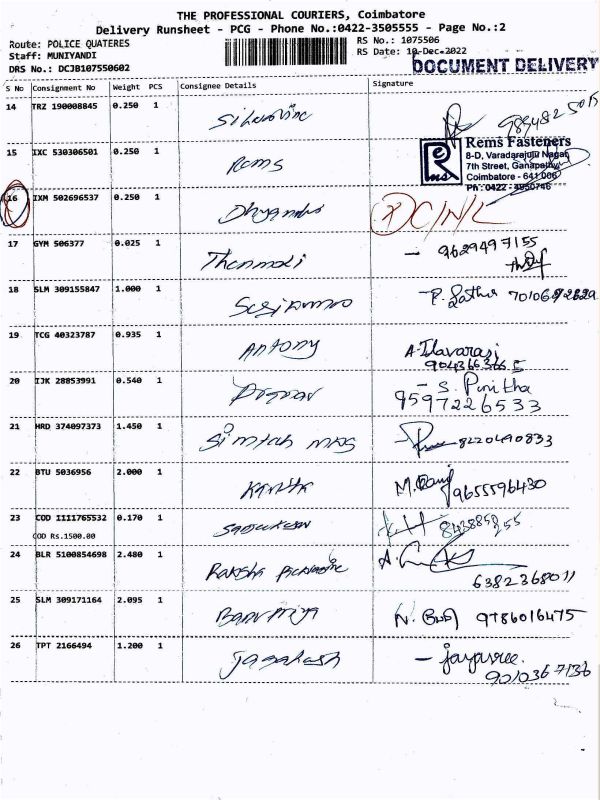 THE PROFESSIONAL COURIERS, Coimbatore
Delivery Runsheet - PCG - Phone No.:0422-3505555 - Page No.:2
Route: POLICE QUATERES
RS No.: 1075506
Staff: MUNIYANDI
RS Date: 10-Dec-2022
DRS No.: DCJB107550602
DOCUMENT DELIVERY
S No Consignment No Weight PCS Consignee Details Signature
14 TRZ 190008845 0.250 1
15 IXC 530306501 0.250 1 Rems
Rems Fasteners
8-D, Varadarajulu Nagar,
7th Street, Ganapathy
Coimbatore - 641 006
Ph : 0422 - 4950746
16 IXM 502696537 0.250 1 DC/N/L
17 GYM 506377 0.025 1 Thenmoli - 9629497155
18 SLM 309155847 1.000 1 P. Latha
19 TCG 40323787 0.935 1 Antony A. Ilavarasi
9043663665
20 IJK 28853991 0.540 1 - S. Punitha
9597226533
21 HRD 374097373 1.450 1 8220490833
22 BTU 5036956 2.000 1 9655596430
23 COD IIII765532 0.170 1
COD Rs.1500.00
24 BLR 5100854698 2.480 1 Raksha
6382368011
25 SLM 309171164 2.095 1 Banupriya 9786016475
26 TPT 2166494 1.200 1 - jayasree.
9010367136